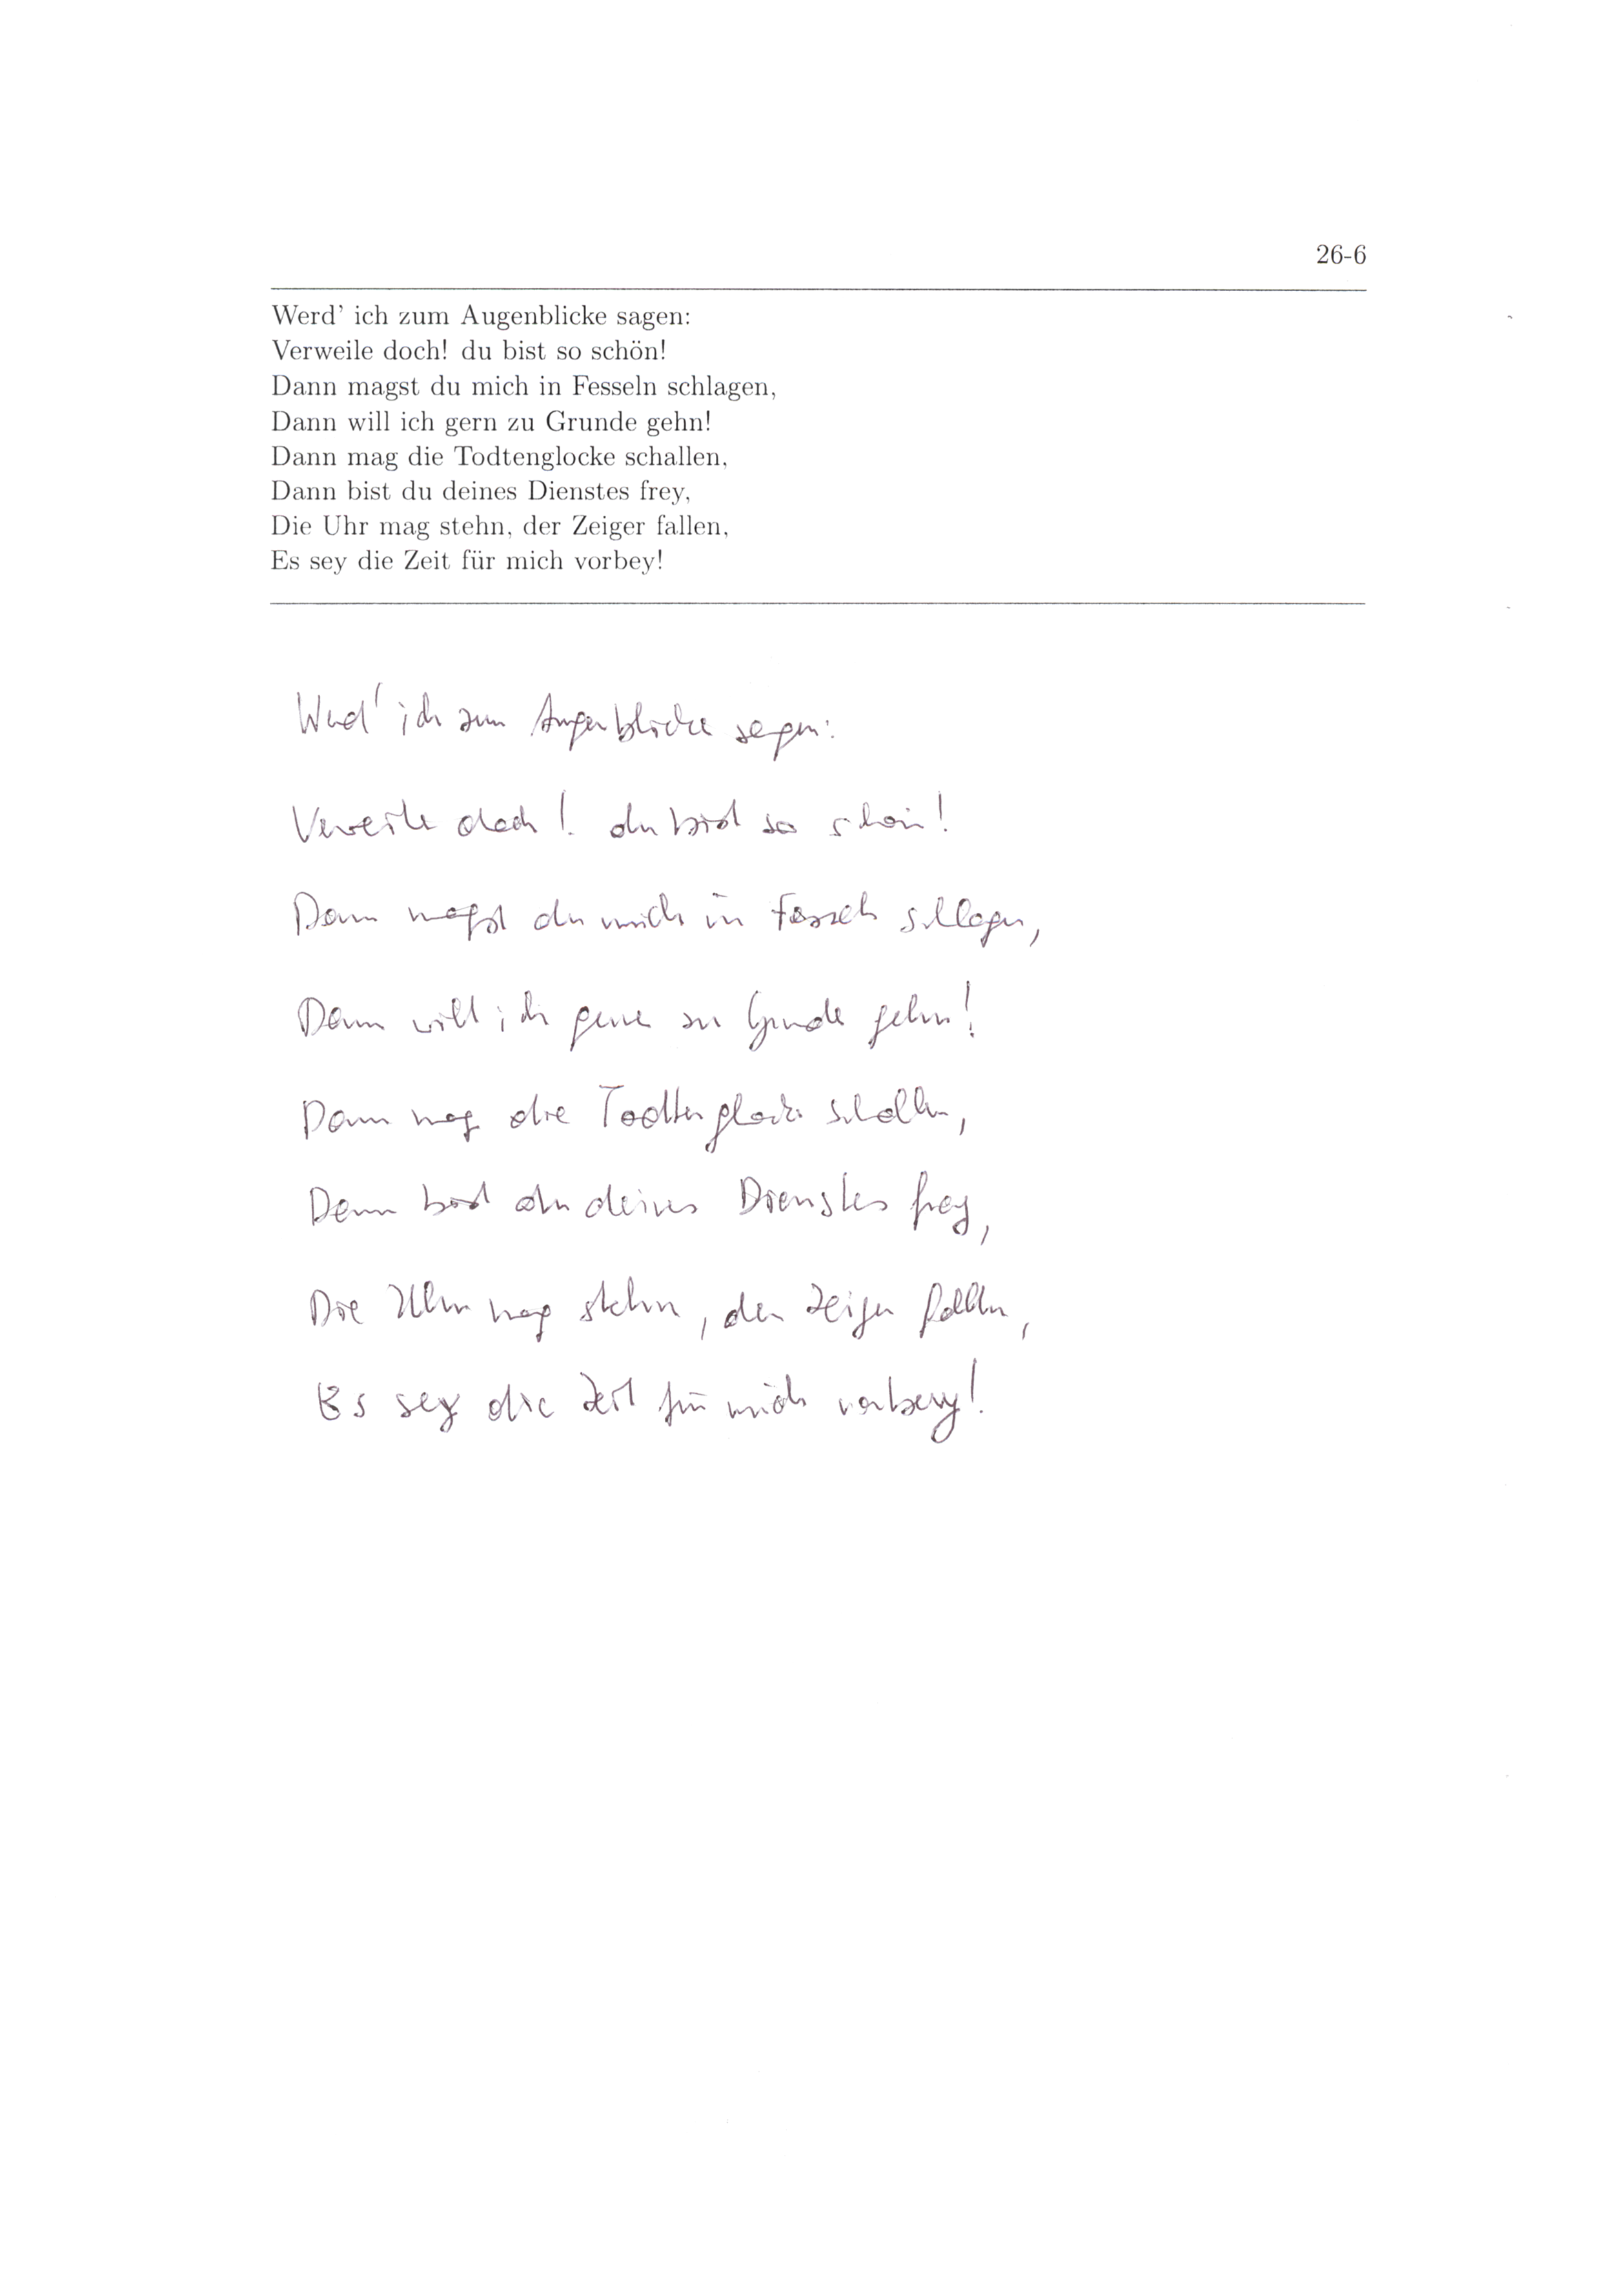 26-6
Werd' ich zum Augenblicke sagen:
Verweile doch! du bist so schön!
Dann magst du mich in Fesseln schlagen,
Dann will ich gern zu Grunde gehn!
Dann mag die Todtenglocke schallen,
Dann bist du deines Dienstes frey,
Die Uhr mag stehn, der Zeiger fallen,
Es sey die Zeit für mich vorbey!
Werd' ich zum Augenblicke sagen:
Verweile doch! du bist so schön!
Dann magst du mich in Fesseln schlagen,
Dann will ich gerne zu Grunde gehn!
Dann mag die Todtenglocke schallen,
Dann bist du deines Dienstes frey,
Die Uhr mag stehn, der Zeiger fallen,
Es sey die Zeit für mich vorbey!